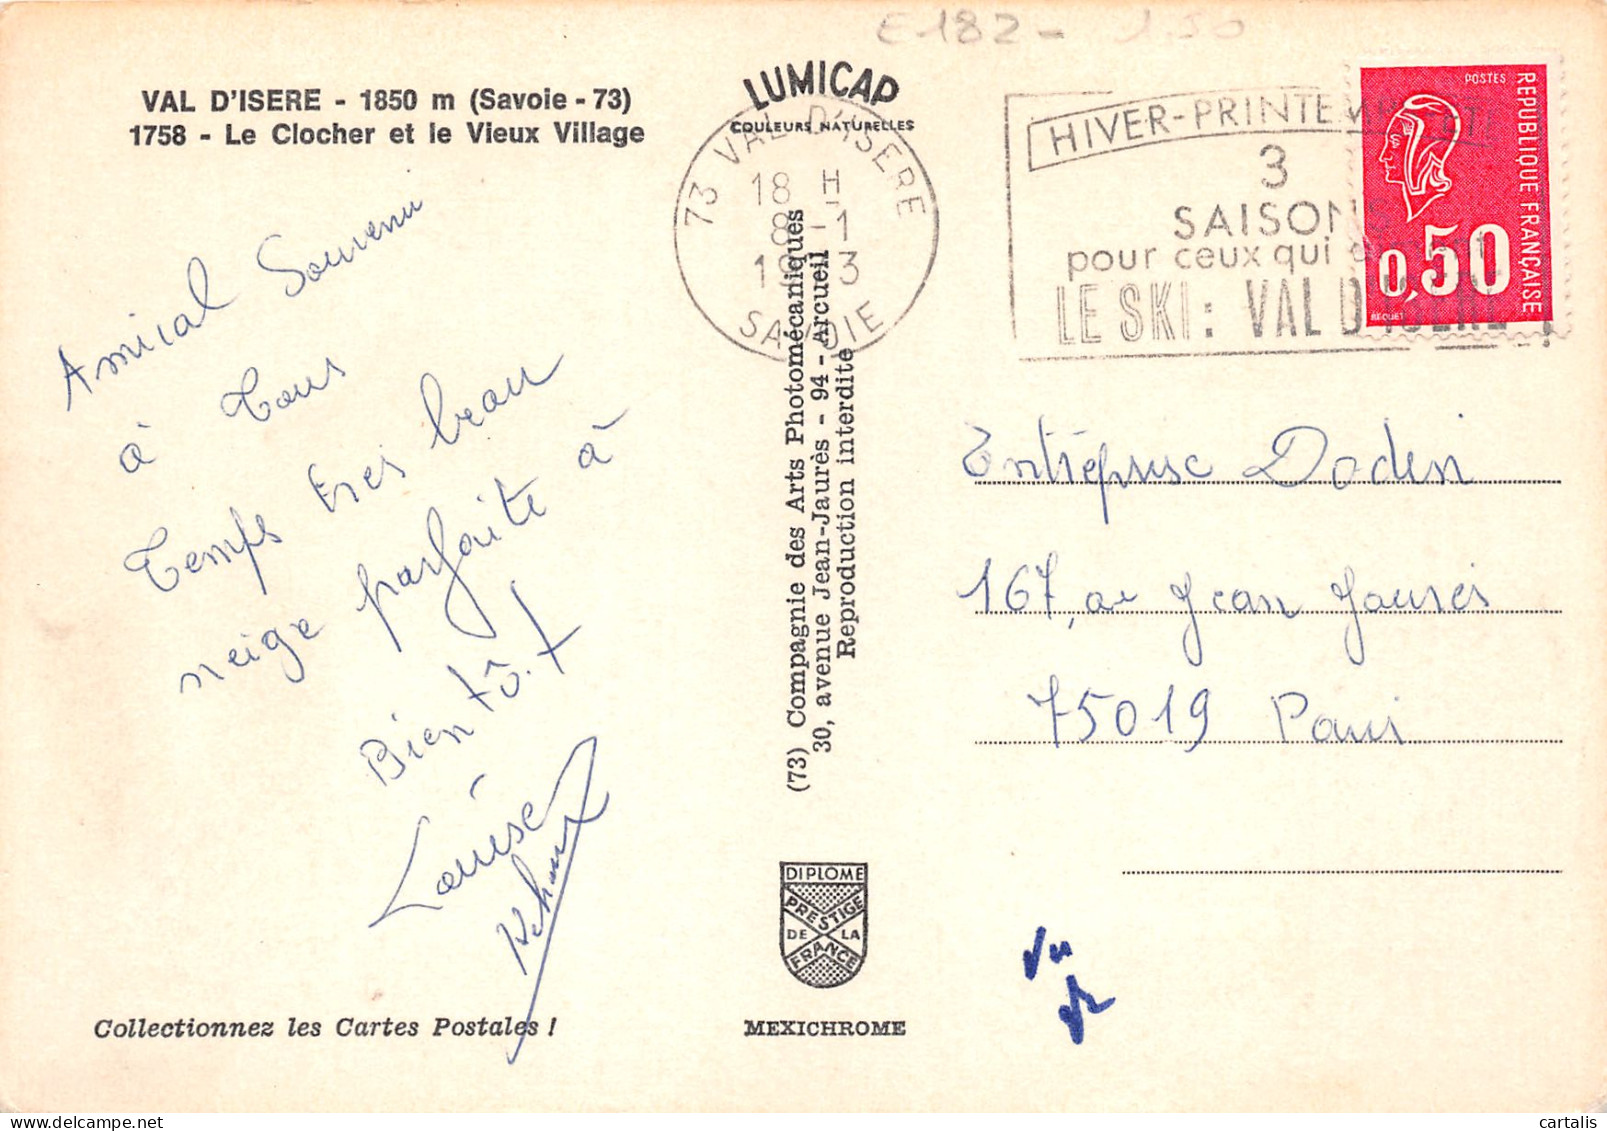 E182- 1.50
VAL D'ISERE - 1850 m (Savoie - 73)
1758 - Le Clocher et le Vieux Village
LUMICAP
COULEURS NATURELLES
73 VAL D'ISERE
18 H
8 -1
19 3
SAVOIE
HIVER-PRINTEMPS-ETE
3
SAISONS
pour ceux qui aiment
LE SKI: VAL D'ISERE !
POSTES
REPUBLIQUE FRANÇAISE
0,50
BEQUET
Amical Souvenir
à Tous
Temps très beau
neige parfaite à
Bientôt
Louise
(73) Compagnie des Arts Photomécaniques
30, avenue Jean-Jaurès - 94 - Arcueil
Reproduction interdite
Entreprise Dodin
167, av Jean Jaurès
75019 Paris
DIPLOME
PRESTIGE
DE LA
FRANCE
Vu
Collectionnez les Cartes Postales !
MEXICHROME
cartalis